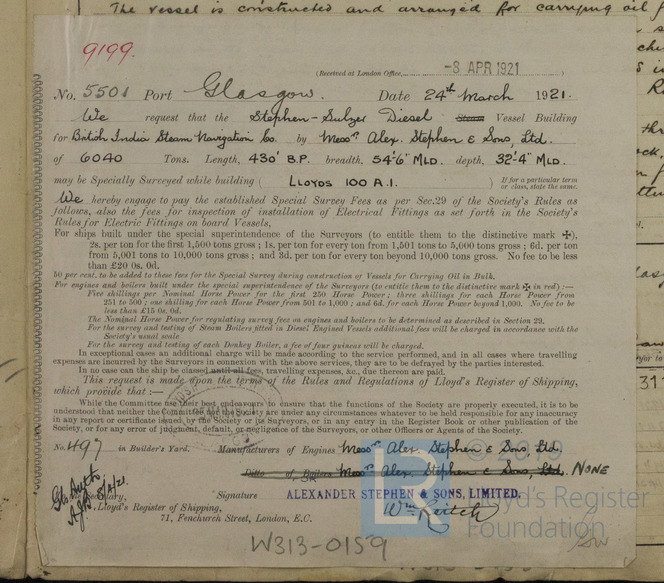 The vessel is constructed and arranged for carrying oil f
9199.
(Received at London Office, -8 APR 1921 )
No. 5501 Port Glasgow. Date 24th March 1921.
We request that the Stephen-Sulzer Diesel Steam Vessel Building
for British India Steam Navigation Co. by Messrs Alex. Stephen & Sons, Ltd.
of 6040 Tons. Length, 430' B.P. breadth, 54'-6" MLD. depth, 32'-4" MLD.
may be Specially Surveyed while building ( LLOYDS 100 A.1. ) If for a particular term or class, state the same.
We hereby engage to pay the established Special Survey Fees as per Sec.29 of the Society's Rules as
follows, also the fees for inspection of installation of Electrical Fittings as set forth in the Society's
Rules for Electric Fittings on board Vessels,
For ships built under the special superintendence of the Surveyors (to entitle them to the distinctive mark ✠),
2s. per ton for the first 1,500 tons gross ; 1s. per ton for every ton from 1,501 tons to 5,000 tons gross ; 6d. per ton
from 5,001 tons to 10,000 tons gross ; and 3d. per ton for every ton beyond 10,000 tons gross. No fee to be less
than £20 0s. 0d.
50 per cent. to be added to these fees for the Special Survey during construction of Vessels for Carrying Oil in Bulk.
For engines and boilers built under the special superintendence of the Surveyors (to entitle them to the distinctive mark ✠ in red) :—
Five shillings per Nominal Horse Power for the first 250 Horse Power ; three shillings for each Horse Power from
251 to 500 ; one shilling for each Horse Power from 501 to 1,000 ; and 6d. for each Horse Power beyond 1,000. No fee to be
less than £15 0s. 0d.
The Nominal Horse Power for regulating survey fees on engines and boilers to be determined as described in Section 29.
For the survey and testing of Steam Boilers fitted in Diesel Engined Vessels additional fees will be charged in accordance with the
Society's usual scale
For the survey and testing of each Donkey Boiler, a fee of four guineas will be charged.
In exceptional cases an additional charge will be made according to the service performed, and in all cases where travelling
expenses are incurred by the Surveyors in connexion with the above services, they are to be defrayed by the parties interested.
In no case can the ship be classed until all fees, travelling expenses, &c., due thereon are paid.
This request is made upon the terms of the Rules and Regulations of Lloyd's Register of Shipping,
which provide that :—
While the Committee use their best endeavours to ensure that the functions of the Society are properly executed, it is to be
understood that neither the Committee nor the Society are under any circumstances whatever to be held responsible for any inaccuracy
in any report or certificate issued by the Society or its Surveyors, or in any entry in the Register Book or other publication of the
Society, or for any error of judgment, default, or negligence of the Surveyors, or other Officers or Agents of the Society.
No. 497 in Builder's Yard. Manufacturers of Engines Messrs Alex. Stephen & Sons Ltd.
Ditto of Boilers Messrs Alex. Stephen & Sons, Ltd. NONE
8/4/21.
Secretary, Signature ALEXANDER STEPHEN & SONS, LIMITED.
Lloyd's Register of Shipping,
71, Fenchurch Street, London, E.C.
W313-0159
LR
Lloyd's Register
Foundation